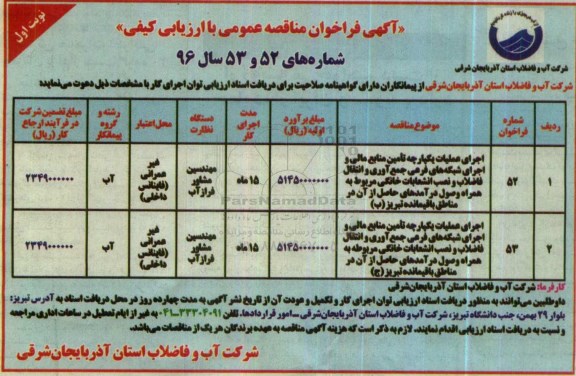 نوبت اول
«آگهی فراخوان مناقصه عمومی با ارزیابی کیفی»
شماره‌های ۵۲ و ۵۳ سال ۹۶
شرکت آب و فاضلاب استان آذربایجان شرقی
شرکت آب و فاضلاب استان آذربایجان‌شرقی از پیمانکاران دارای گواهینامه صلاحیت برای دریافت اسناد ارزیابی توان اجرای کار با مشخصات ذیل دعوت می‌نماید:
ردیف
شماره فراخوان
موضوع مناقصه
مبلغ برآورد اولیه (ریال)
مدت اجرای کار
دستگاه نظارت
محل اعتبار
رشته و گروه پیمانکار
مبلغ تضمین شرکت در فرآیند ارجاع کار (ریال)
۱
۵۲
اجرای عملیات یکپارچه تأمین منابع مالی و اجرای شبکه‌های فرعی جمع‌آوری و انتقال فاضلاب و نصب انشعابات خانگی مربوط به همراه وصول درآمدهای حاصل از آن در مناطق باقیمانده تبریز (ب)
۵۱۴۵۰۰۰۰۰۰۰
۱۵ ماه
مهندسین مشاور فرازآب
غیر عمرانی (فاینانس داخلی)
آب
۲۳۴۹۰۰۰۰۰۰
۲
۵۳
اجرای عملیات یکپارچه تأمین منابع مالی و اجرای شبکه‌های فرعی جمع‌آوری و انتقال فاضلاب و نصب انشعابات خانگی مربوط به همراه وصول درآمدهای حاصل از آن در مناطق باقیمانده تبریز (ج)
۵۱۴۵۰۰۰۰۰۰۰
۱۵ ماه
مهندسین مشاور فرازآب
غیر عمرانی (فاینانس داخلی)
آب
۲۳۴۹۰۰۰۰۰۰
کارفرما: شرکت آب و فاضلاب استان آذربایجان‌شرقی
داوطلبین می‌توانند به منظور دریافت اسناد ارزیابی توان اجرای کار و تکمیل و عودت آن از تاریخ نشر آگهی به مدت چهارده روز در محل دریافت اسناد به آدرس تبریز:
بلوار ۲۹ بهمن، جنب دانشگاه تبریز، شرکت آب و فاضلاب استان آذربایجان‌شرقی - امور قراردادها، تلفن ۳۳۳۰۴۰۹۱-۰۴۱ به غیر از ایام تعطیل در ساعات اداری مراجعه
و نسبت به دریافت اسناد ارزیابی اقدام نمایند. لازم به ذکر است که هزینه آگهی مناقصه به عهده برندگان هر یک از مناقصات می‌باشد.
شرکت آب و فاضلاب استان آذربایجان‌شرقی
ParsNamadData